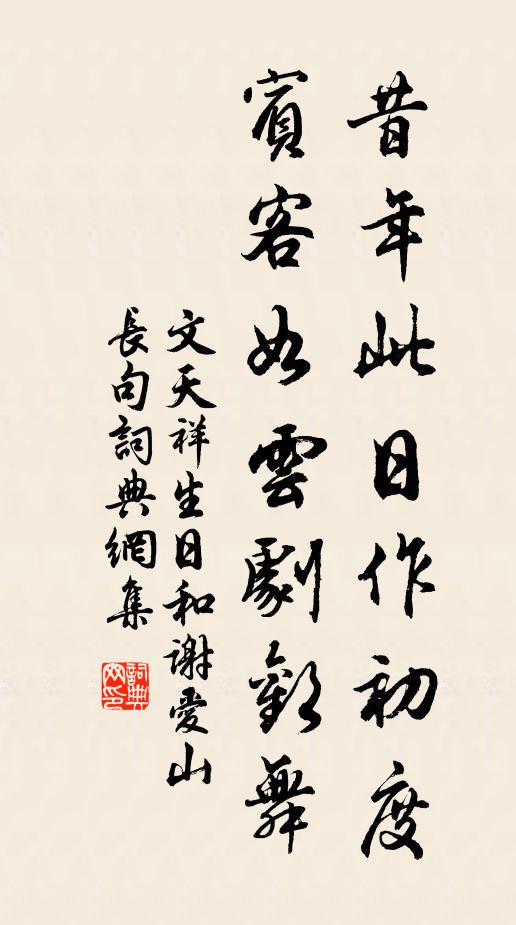 昔年此日作初度
賓客如雲劇歡舞
文天祥生日和謝愛山
長句詞典網集
詞典網印